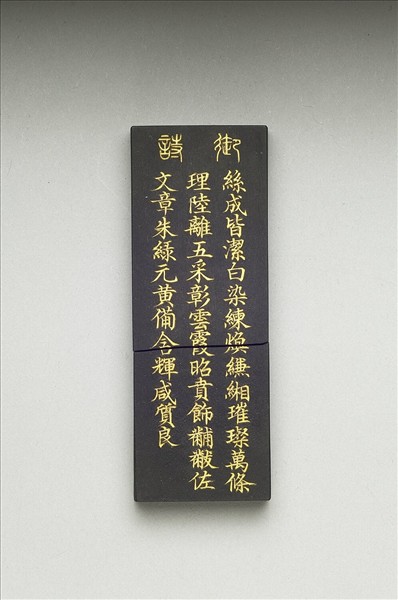 御詩
絲成皆潔白染練煥縑緗璀璨萬條
理陸離五采彰雲霞昭賁飾黼黻佐
文章朱緑元黄備含輝咸質良